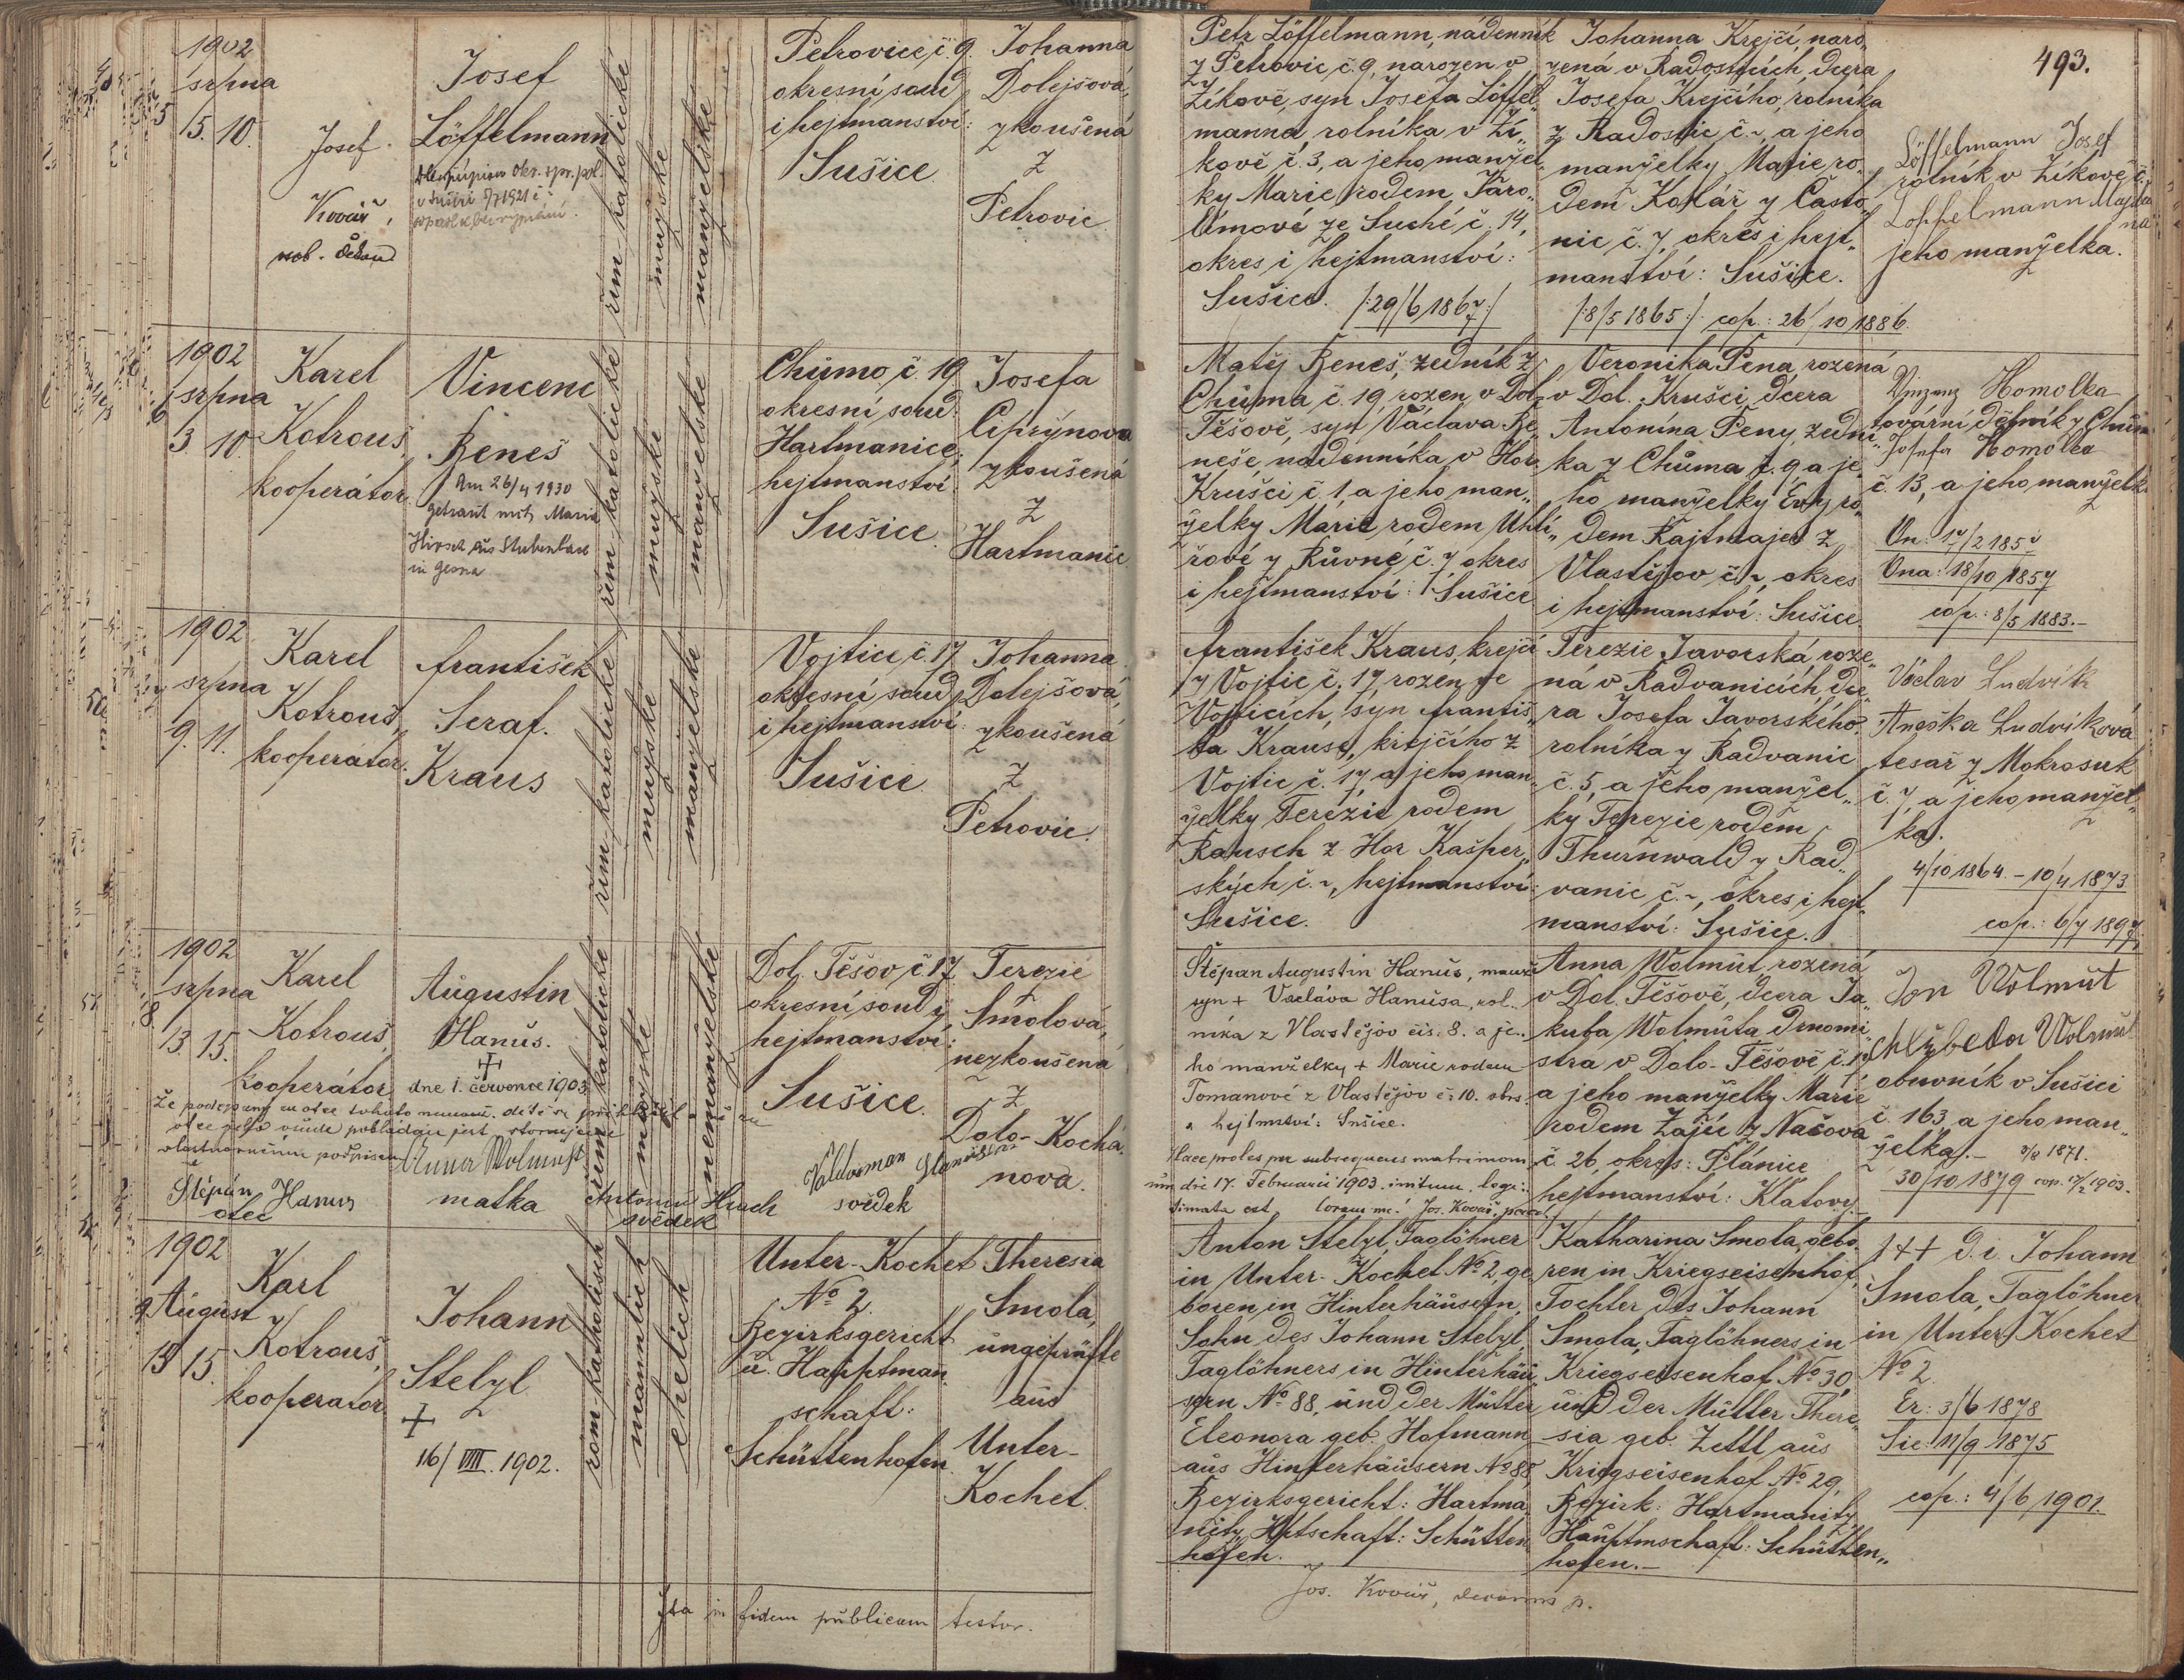 493.
1902
srpna
5. 10.
Josef
Kovář,
osob. děkan
Josef
Löffelmann
řím. katolické
mužské
manželské
Petrovice, č. 9.
okresní soud
i hejtmanství:
Sušice
Johanna
Dolejšová,
zkoušená
z
Petrovic
Petr Löffelmann, nádenník
z Petrovic, č. 9, narozen v
Žíkově, syn Josefa Löffel„
manna, rolníka v Ží„
kově č. 3, a jeho manžel„
ky Marie, rodem Jaro„
límové ze Suché č. 14,
okres i hejtmanství:
Sušice. /:29/6 1867:/
Johanna Krejčí, naro„
zená v Radosticích, dcera
Josefa Krejčího, rolníka
z Radostic č. ~, a jeho
manželky Marie, ro„
dem Kolář z Často„
nic č. 7, okres i hejt„
manství: Sušice.
/:8/5 1865:/ cop.: 26/10 1886.
Löffelmann Josef
rolník v Žíkově č.
Löffelmann Majda
na
jeho manželka.
1902
srpna
3 10
Karel
Kotrouš,
kooperátor
Vincenc
Beneš
Am 26/4 1930
getraut mit Maria
Hirsch aus Stubenbach
in
řím. katolické
mužské
manželské
Chůmo, č. 19
okresní soud:
Hartmanice,
hejtmanství
Sušice
Josefa
Ciprýnova
zkoušená
z
Hartmanic
Matěj Beneš, zedník z
Chůma č. 19, rozen v Dol.
Těšově, syn Václava Be„
neše, nádenníka v Hor.
Krušci č. 1, a jeho man„
želky Marie rodem Uhlí„
řové z Růvné, č. 7 okres
i hejtmanství: Sušice
Veronika Pena, rozená
v Dol. Krušci, dcera
Antonína Peny, zední„
ka z Chůma č. 9 a je„
ho manželky Evy ro„
dem Rajtmajer z
Vlastějov č. ~, okres
i hejtmanství: Sušice.
Vinzenz Homolka
tovární dělník z Chům
Josefa Homolka
č. 13, a jeho manželk
Ona: 18/10 1857
cop.: 8/5 1883.-
1902
srpna
9. 11.
Karel
Kotrouš,
kooperátor.
František
Seraf.
Kraus
řím. katolické
mužské
manželské
Vojtice, č. 17
okresní soud
i hejtmanství:
Sušice
Johanna
Dolejšová,
zkoušená
z
Petrovic.
František Kraus, krejčí
z Vojtic č. 17 rozen ve
Vojticích, syn Františ„
ka Krause, krejčího z
Vojtic č. 17, a jeho man„
želky Terézie rodem
Rausch z Hor Kašper„
ských č. ~, hejtmanství:
Sušice.
Terezie Javorská, roze„
ná v Radvanicích, dce„
ra Josefa Javorského,
rolníka z Radvanic
č. 5, a jeho manžel„
ky Terezie rodem
Thurnwald z Rad„
vanic č. ~, okres i hejt„
manství: Sušice.
Václav Ludvík
Anežka Ludvíková
tesař z Mokrosuk
č. 7, a jeho manžel„
ka.
4/10 1864. - 10/4 1873.
cop.: 6/7 1897.
1902
srpna
13. 15.
Karel
Kotrouš,
kooperátor
Augustin
Hanuš.
+
dne 1. července 1903.
řím. katolické
mužské
nemanželské
Dol. Těšov, č. 17.
okresní soud i
hejtmanství:
Sušice.
Terezie
Smolová,
nezkoušená
z
Dolo-Kochá„
nova.
vlastnoručním podpisem
Anna Wolmuth
Štěpán Hanus
otec
matka
Antonín Hrach
svědek
svědek
Štěpán Augustin Hanuš,
syn + Vacláva Hanuša, rol„
níka z Vlastějov čís. 8. a je„
ho manželky + Marie rodem
Tomanové z Vlastějov č. 10.
a hejtmství: Sušice.
Haec proles per subsequens matrimoni„
um die 17. Februarii 1903. initum legi„
timata est coram me: Jos. Kovář,
Anna Wolmut, rozená
v Dol. Těšově, dcera Ja„
kuba Wolmuta, drnomi„
stra v Dolo-Těšově č. 17
a jeho manželky Marie
rodem Zajíc z Načova
č. 26, okres: Plánice
hejtmanství: Klatovy.-
Jan Wolmut
Alžbeta Wolmut
obuvník v Sušici
č. 163, a jeho man„
želka.-
30/10 1879
1902
August
13 15.
Karl
Kotrouš,
kooperator
Johann
Stelzl
+
16/VIII. 1902.
röm. katholisch
männlich
ehelich
Unter-Kochet
No 2.
Bezirksgericht
u. Hauptman„
schaft:
Schüttenhofen
Theresia
Smola,
ungeprüfte
aus
Unter-
Kochet.
Anton Stelzl, Taglöhner
in Unter-Kochet No 2, ge„
boren in Hinterhäusern,
Sohn des Johann Stelzl,
Taglöhners in Hinterhäu„
sern No 88, und der Mutter
Eleonora geb. Hofmann
aus Hinterhäusern No 88,
Bezirksgericht: Hartma„
nitz, Hptschaft: Schütten„
hofen.
Katharina Smola, gebo„
ren in Kriegseisenhof,
Tochter des Johann
Smola, Taglöhners in
Kriegseisenhof No 30,
und der Mutter There„
sia geb. Zettl aus
Kriegseisenhof No 29,
Bezirk: Hartmanitz
Hauptmschaft: Schütten„
hofen.-
+++ d. i. Johann
Smola, Taglöhner
in Unter Kochet
No 2.
Er: 3/6 1878
Sie: 11/9 1875
cop.: 4/6 1901.
Ita in fidem publicam testor.
Jos. Kovář, decanus p.